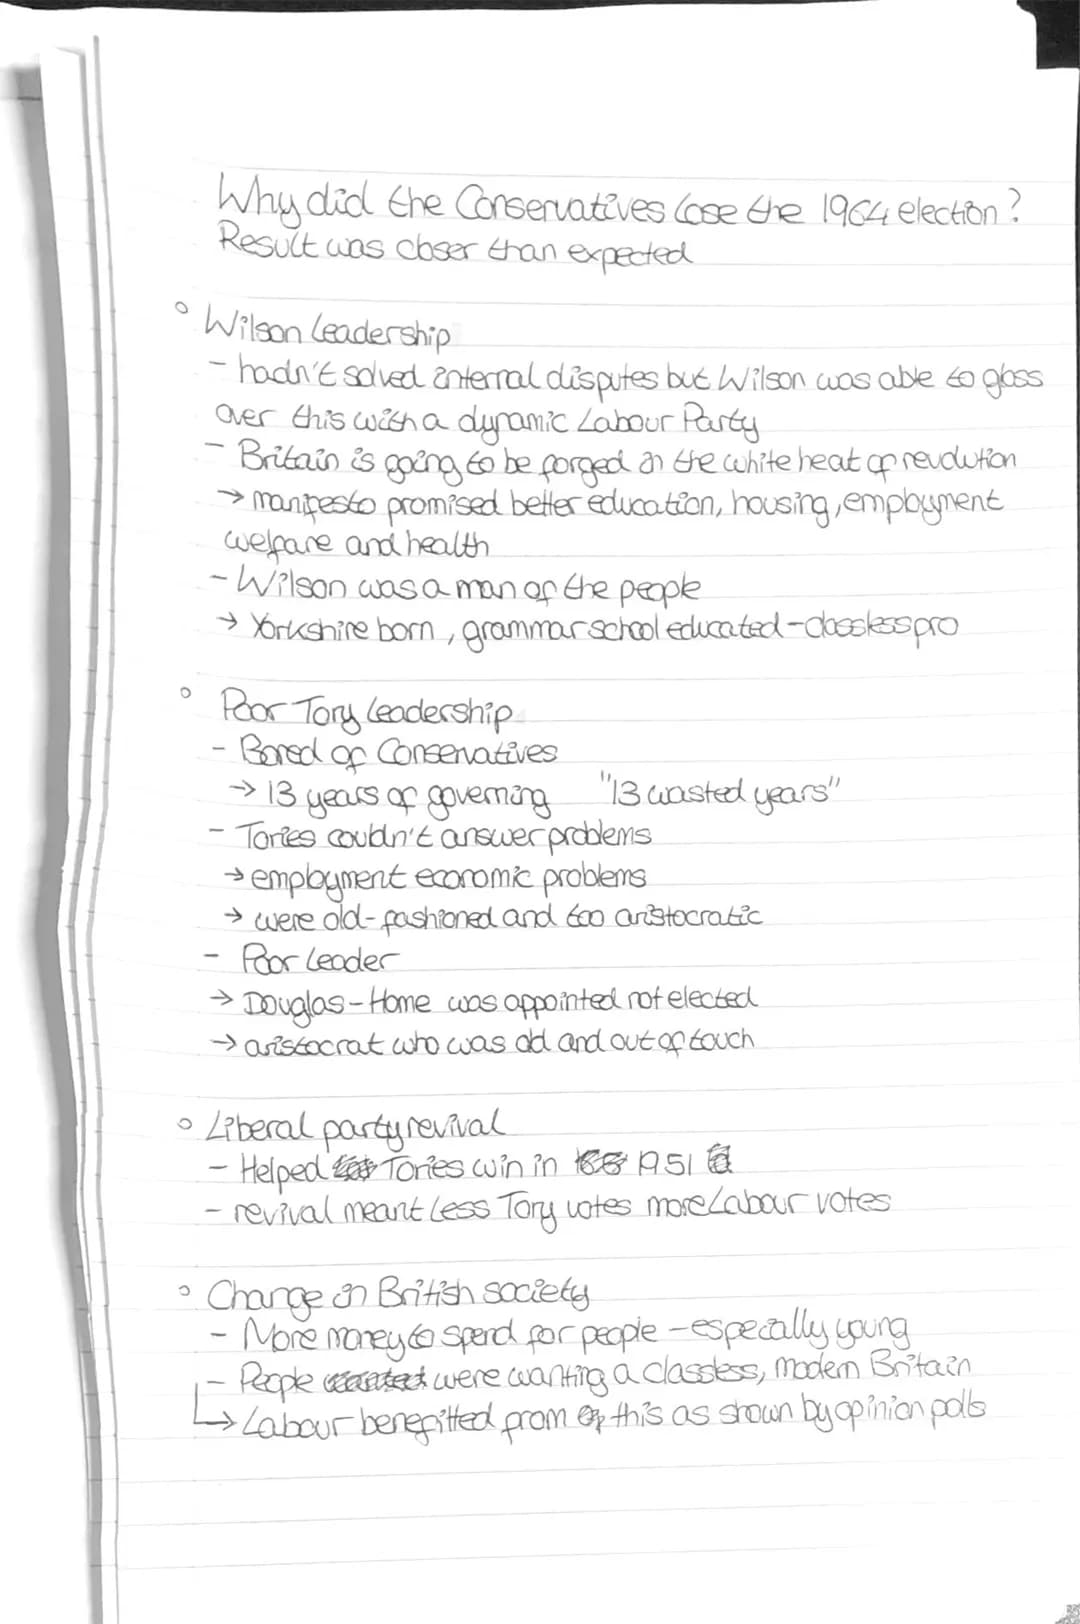 Why did the Conservatives lose the 1964 election?
Result was closer than expected
° Wilson leadership
- hadn't solved internal disputes but Wilson was able to gloss
over this with a dynamic Labour Party
- Britain is going to be forged in the white heat of revolution
→ manifesto promised better education, housing, employment
welfare and health
- Wilson was a man of the people
→ Yorkshire born, grammar school educated - classless pro
° Poor Tory leadership
- Bored of Conservatives
→ 13 years of governing "13 wasted years"
- Tories couldn't answer problems
→ employment economic problems
→ were old-fashioned and too aristocratic
- Poor leader
→ Douglas-Home was appointed not elected
→ aristocrat who was old and out of touch
° Liberal party revival
- Helped Tories win in 1951
- revival meant less Tory votes more Labour votes
° Change in British society
- More money to spend for people - especially young
- People were wanting a classless, modern Britain
↳ Labour benefitted from this as shown by opinion polls